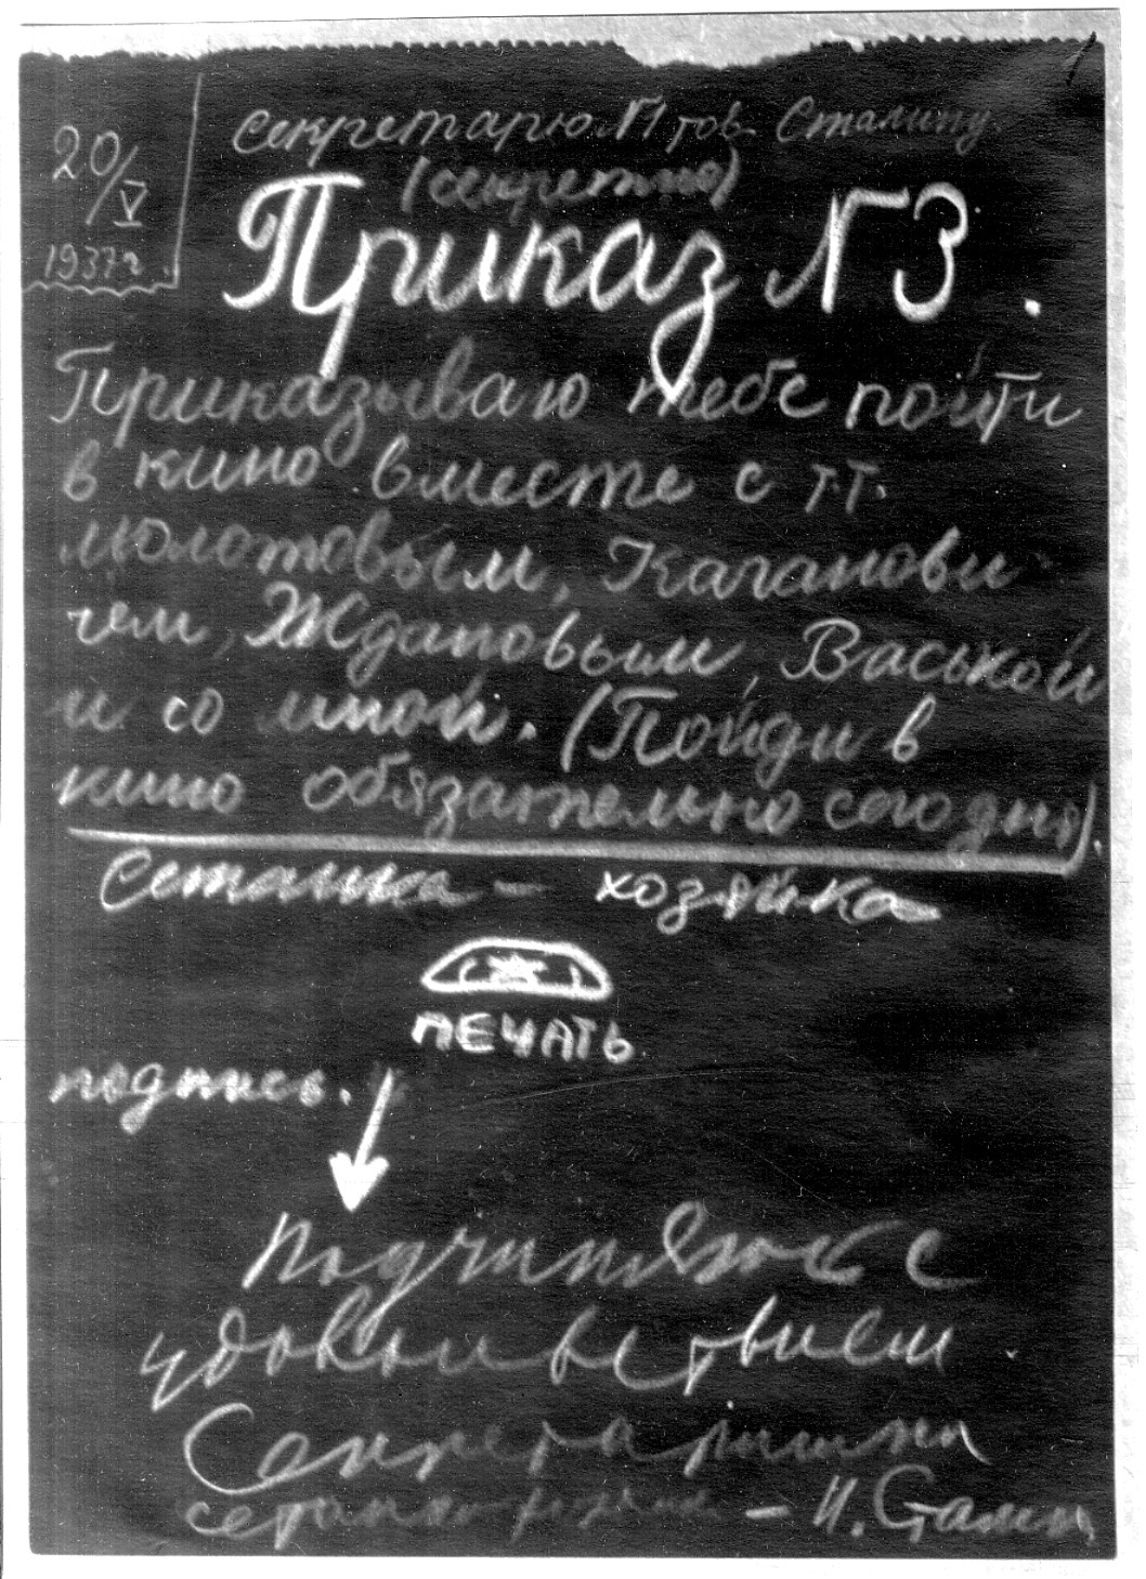 20/V
1937 г.
Секретарю №1 тов. Сталину.
(секретно)
Приказ №3.
Приказываю тебе пойти
в кино вместе с т.т.
Молотовым, Каганови
чем, Ждановым, Васькой
и со мной. (Пойди в
кино обязательно сегодня).
Сетанка – хозяйка
ПЕЧАТЬ
подпись.
Подчиняюсь с
удовольствием.
Секретаришка
сетанки – И. Сталин